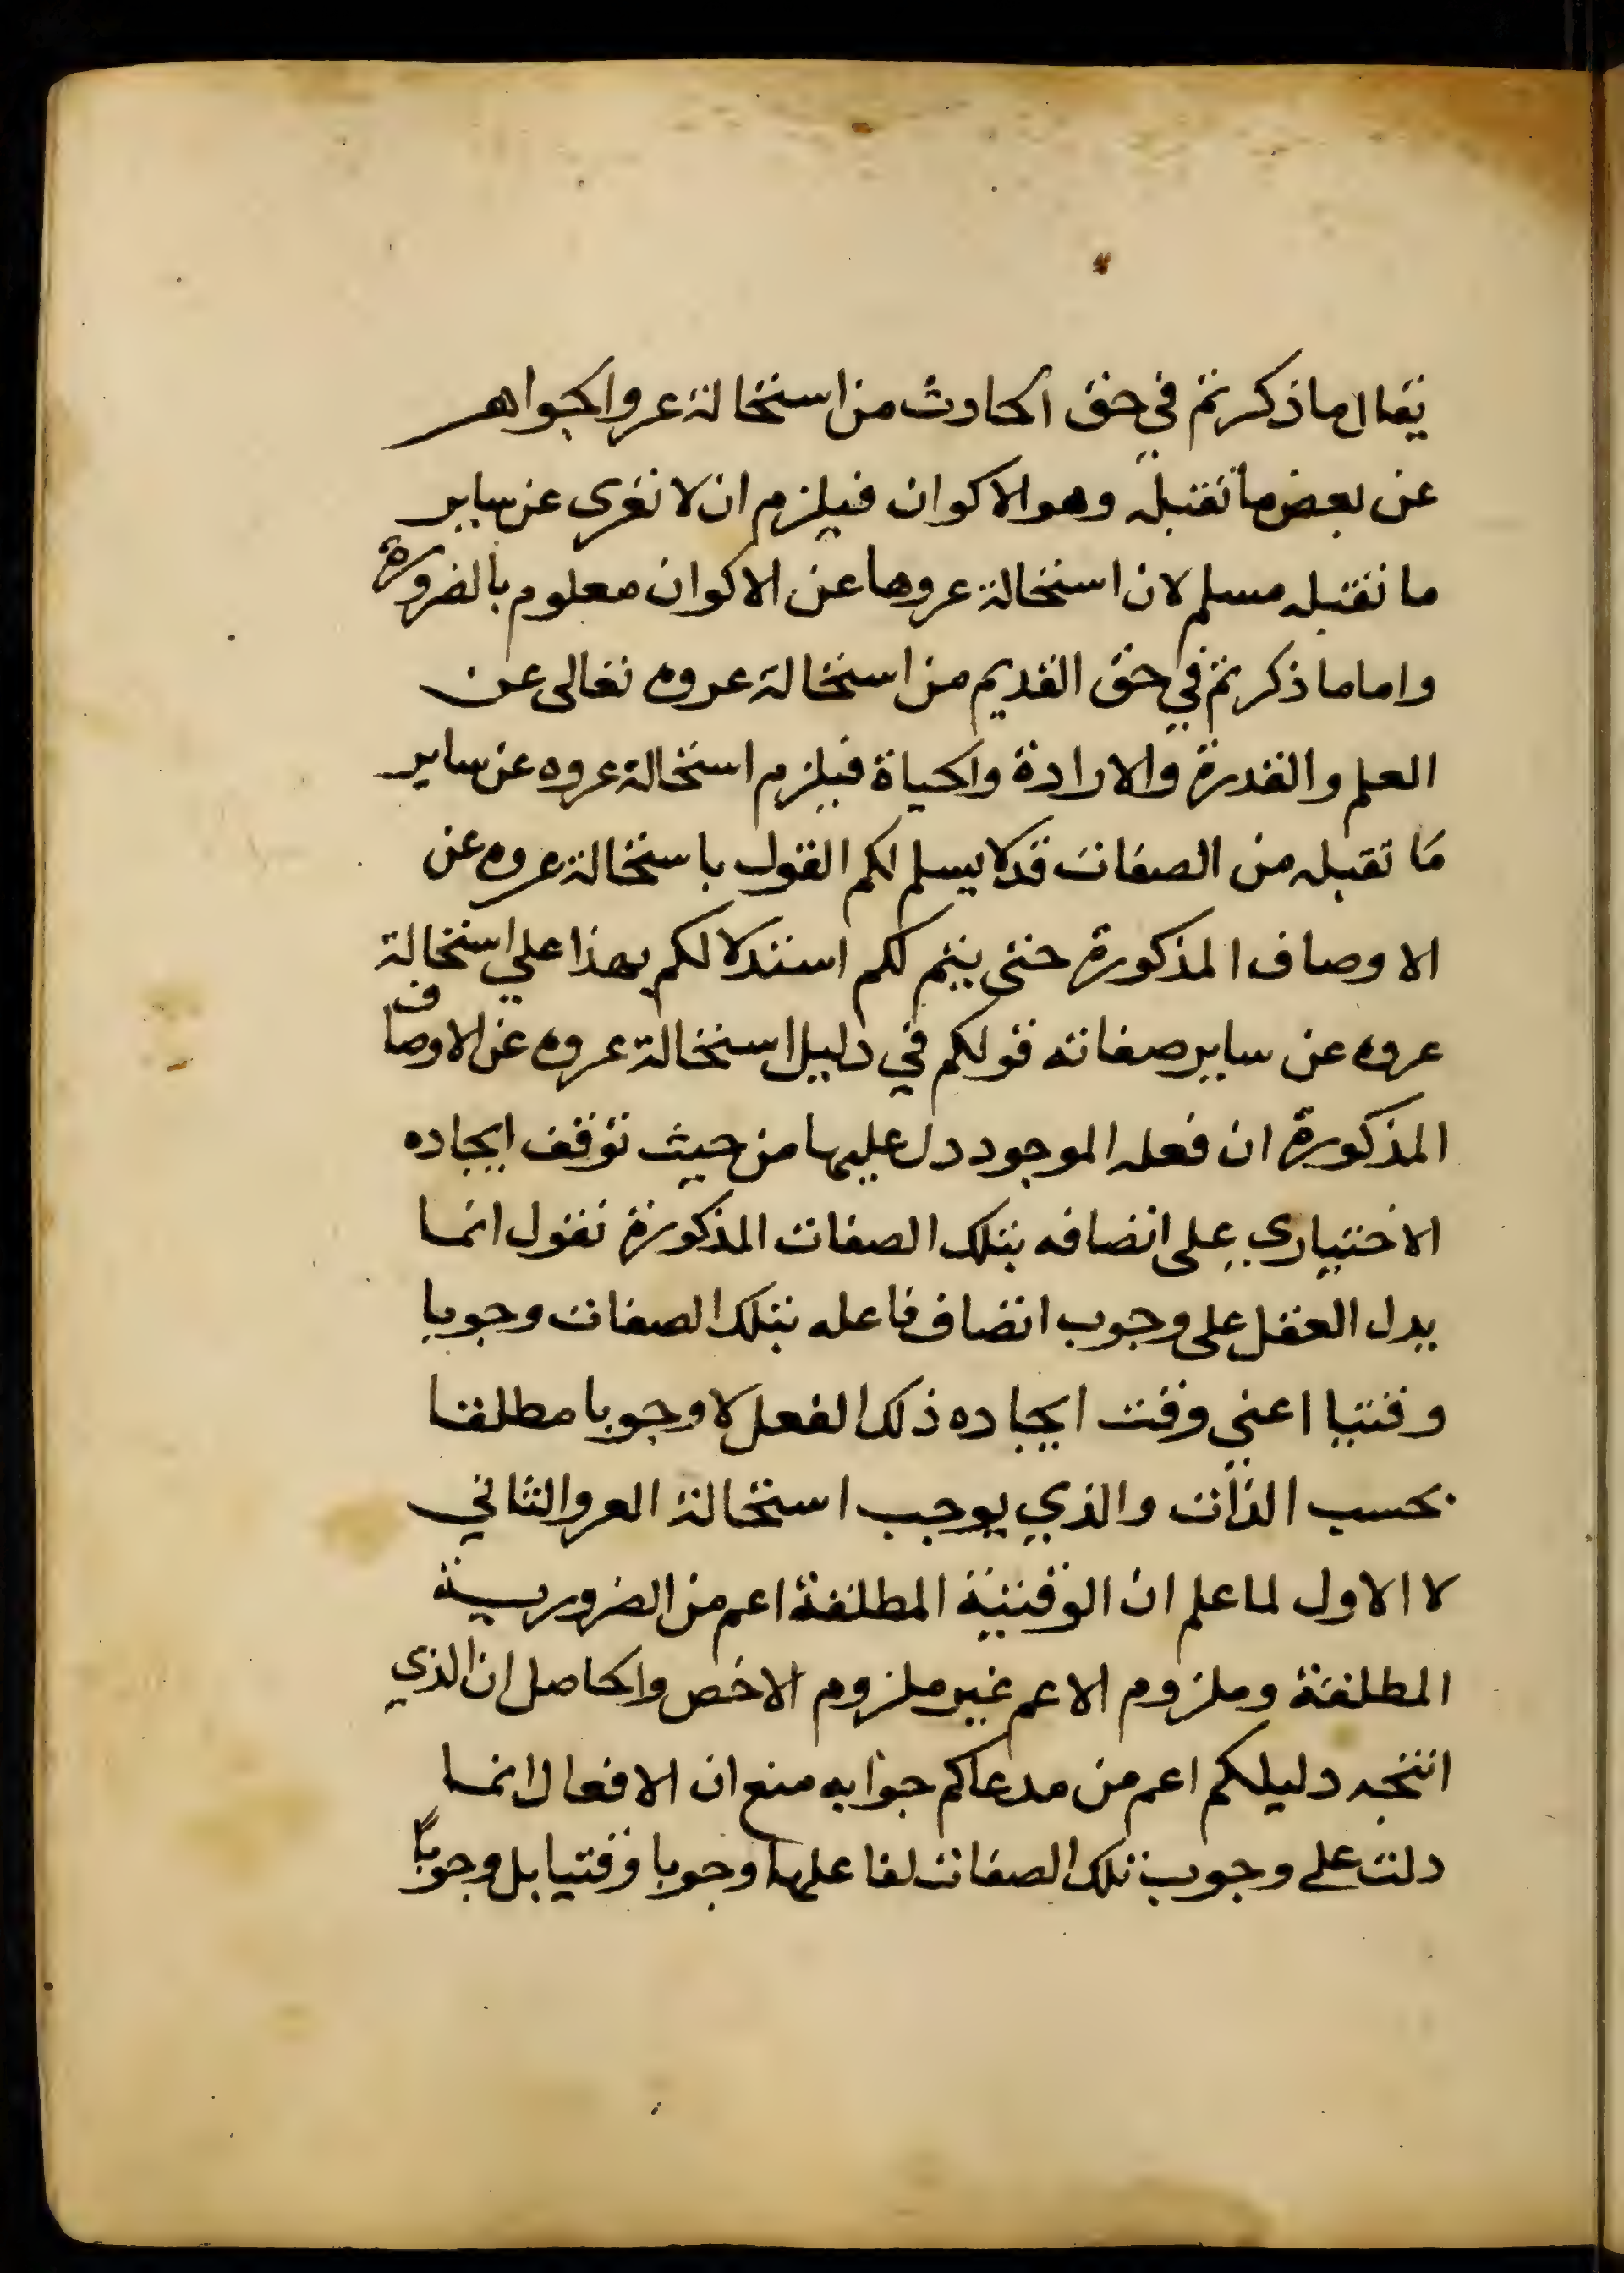 يقال ما ذكرتم في حق الحادث من استحالة عرو الجواهر
عن بعض ما تقبله وهو الاكوان فيلزم ان لا تعرى عن ساير
ما تقبله مسلم لان استحالة عروها عن الاكوان معلوم بالضرورة
واما ما ذكرتم في حق القديم من استحالة عروه تعالى عن
العلم والقدرة والارادة والحياة فيلزم استحالة عروه عن ساير
ما تقبله من الصفات قد لا يسلم لكم القول باستحالة عروه عن
الاوصاف المذكورة حتى يتم لكم استدلالكم بهذا على استحالة
عروه عن ساير صفاته قولكم في دليل استحالة عروه عن الاوصاف
المذكورة ان فعله الموجود دل عليها من حيث توقف ايجاده
الاختياري على اتصافه بتلك الصفات المذكورة نقول انما
يدل العقل على وجوب اتصاف فاعله بتلك الصفات وجوبا
وقتيا اعني وقت ايجاده ذلك الفعل لا وجوبا مطلقا
بحسب الذات والذي يوجب استحالة العرو الثاني
لا الاول لما علم ان الوقتية المطلقة اعم من الضرورية
المطلقة وملزوم الاعم غير ملزوم الاخص والحاصل ان الذي
انتجه دليلكم اعم من مدعاكم جوابه منع ان الافعال انما
دلت على وجوب تلك الصفات لفاعلها وجوبا وقتيا بل وجوباً